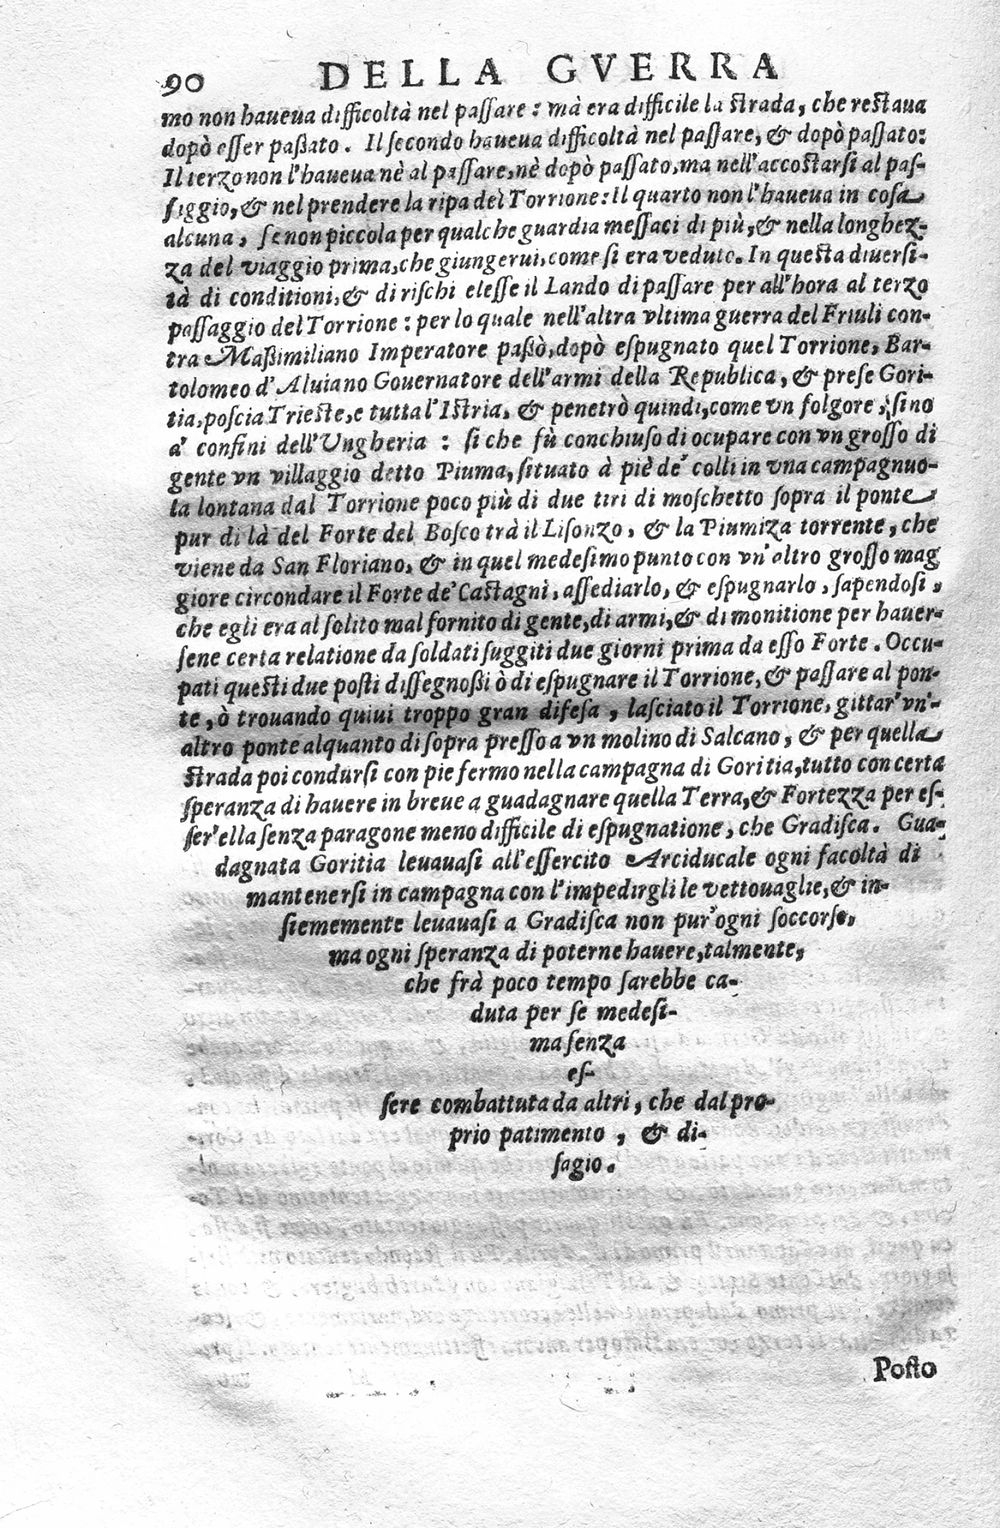 90 DELLA GVERRA
mo non haueua difficoltà nel paſſare : mà era difficile la ſtrada, che reſtaua
dopò eſſer paßato. Il ſecondo haueua difficoltà nel paſſare, & dopò paſſato:
Il terzo non l'haueua nè al paſſare, nè dopò paſſato, ma nell'accoſtarſi al paſ-
ſiggio, & nel prendere la ripa del Torrione: Il quarto non l'haueua in coſa
alcuna, ſe non piccola per qualche guardia meſſaci di più, & nella longhez-
za del viaggio prima, che giungerui, come ſi era veduto. In queſta diuerſi-
tà di conditioni, & di riſchi eleſſe il Lando di paſſare per all'hora al terzo
paſſaggio del Torrione : per lo quale nell'altra vltima guerra del Friuli con-
tra Maßimiliano Imperatore paßò, dopò eſpugnato quel Torrione, Bar-
tolomeo d'Aluiano Gouernatore dell'armi della Republica, & preſe Gori-
tia, poſcia Trieſte, e tutta l'Iſtria, & penetrò quindi, come vn folgore, ſino
a' confini dell'Ungheria : ſi che fù conchiuſo di ocupare con vn groſſo di
gente vn villaggio detto Piuma, ſituato à piè de' colli in vna campagnuo-
la lontana dal Torrione poco più di due tiri di moſchetto ſopra il ponte
pur di là del Forte del Boſco trà il Liſonzo, & la Piumiza torrente, che
viene da San Floriano, & in quel medeſimo punto con vn'altro groſſo mag
giore circondare il Forte de' Caſtagni, aſſediarlo, & eſpugnarlo, ſapendoſi,
che egli era al ſolito mal fornito di gente, di armi, & di monitione per hauer-
ſene certa relatione da ſoldati fuggiti due giorni prima da eſſo Forte. Occu-
pati queſti due poſti diſſegnoßi ò di eſpugnare il Torrione, & paſſare al pon-
te, ò trouando quiui troppo gran difeſa, laſciato il Torrione, gittar' vn'-
altro ponte alquanto di ſopra preſſo a vn molino di Salcano, & per quella
ſtrada poi condurſi con pie fermo nella campagna di Goritia, tutto con certa
ſperanza di hauere in breue a guadagnare quella Terra, & Fortezza per eſ-
ſer' ella ſenza paragone meno difficile di eſpugnatione, che Gradiſca. Gua-
dagnata Goritia leuauaſi all'eſſercito Arciducale ogni facoltà di
mantenerſi in campagna con l'impedirgli le vettouaglie, & in-
ſiememente leuauaſi a Gradiſca non pur' ogni ſoccorſo,
ma ogni ſperanza di poterne hauere, talmente,
che frà poco tempo ſarebbe ca-
duta per ſe medeſi-
ma ſenza
eſ-
ſere combattuta da altri, che dal pro-
prio patimento, & di-
ſagio.
Poſto